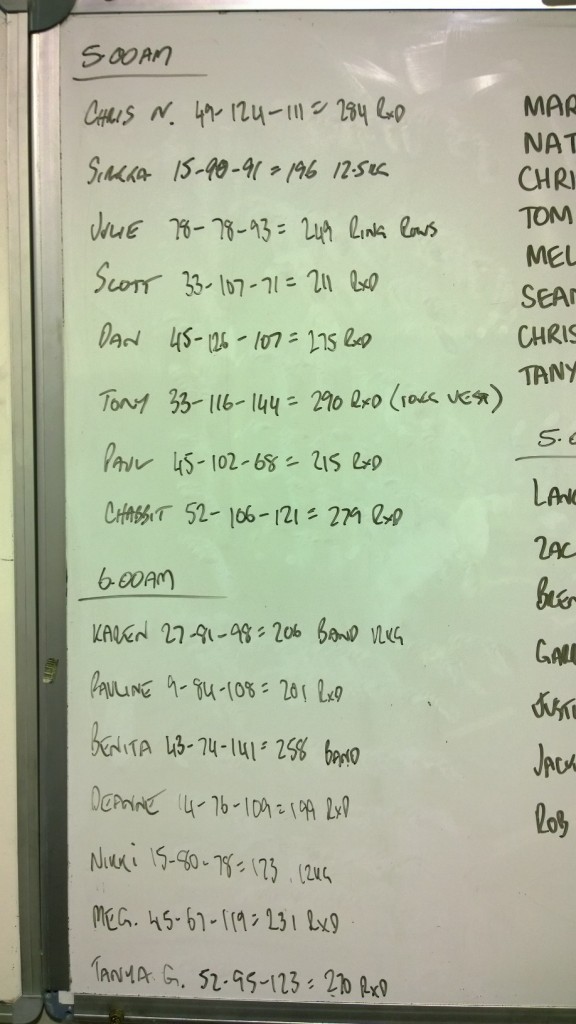 5:00AM
CHRIS N. 49-124-111 = 284 RxD
15-90-91 = 196 12.5KG
JULIE 78-78-93 = 249 RING ROWS
SCOTT 33-107-71 = 211 RxD
DAN 45-126-107 = 275 RxD
TONY 33-116-144 = 290 RxD (10KG VEST)
PAUL 45-102-68 = 215 RxD
CHABBIT 52-106-121 = 279 RxD
6:00AM
KAREN 27-81-98 = 206 BAND 12KG
PAULINE 9-84-108 = 201 RxD
BENITA 43-74-141 = 258 BAND
DEANNE 14-76-109 = 199 RxD
NIKKI 15-80-78 = 173 12KG
MEG. 45-67-119 = 231 RxD
TANYA G. 52-95-123 = 270 RxD
MAR
NAT
CHRI
TOM
MEL
SEAN
CHRIS
TANY
5.0
LANC
ZAC
BREN
GARR
JUSTI
JACK
ROB